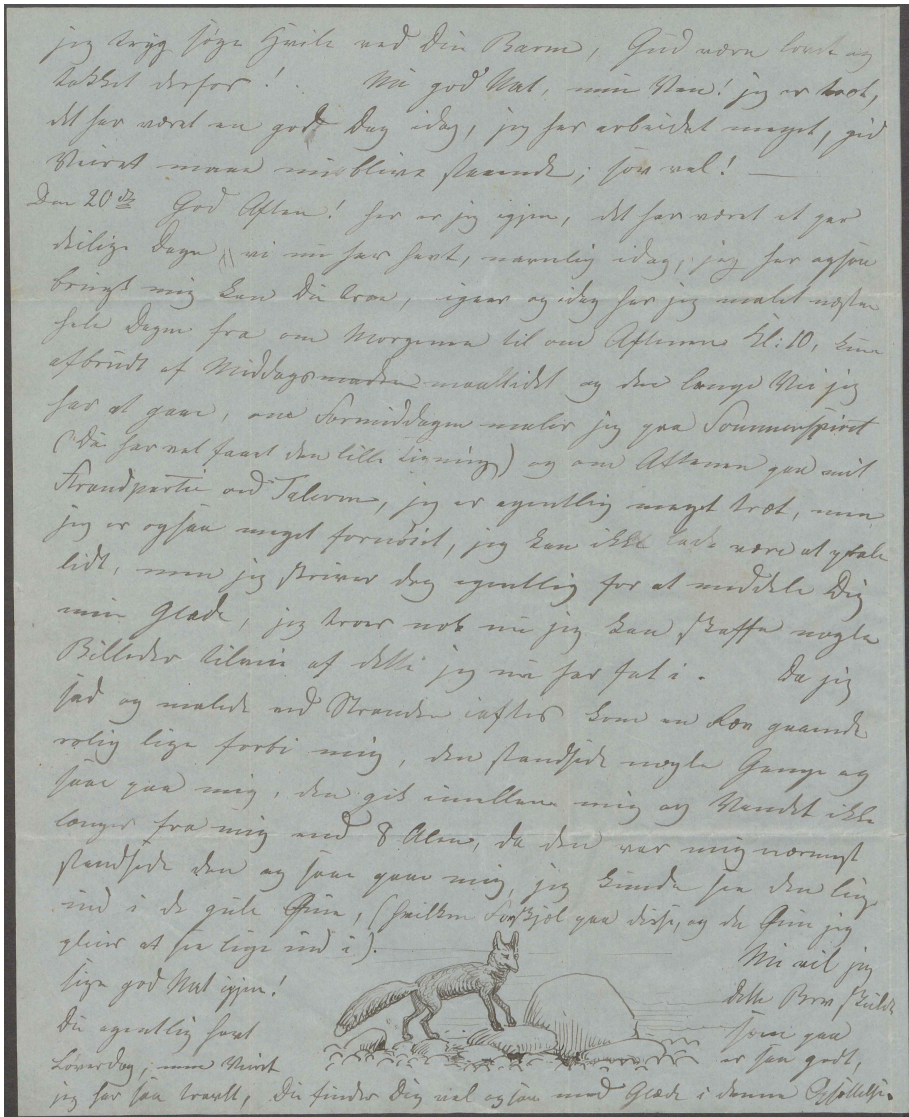 jeg tryg søge Hvile ved Din Barm, Gud være lovet og
takket derfor! Nu god Nat, min Ven! jeg er træt,
det har været en god Dag idag, jeg har arbeidet meget, gid
Veiret maa nu blive staaende; sov vel!
Den 20de God Aften! her er jeg igjen, det har været et par
deilige Dage vi nu har havt, navnlig idag, jeg har ogsaa
brugt mig kan Du troe, igaar og idag har jeg malet næsten
hele Dagen fra om Morgenen til om Aftenen Kl: 10, kun
afbrudt af Middagsmaden maaltidet og den lange Vei jeg
har at gaae, om Formiddagen maler jeg paa Sommerspiret
(Du har vel faaet den lille Tegning) og om Aftenen paa mit
Strandpartie ved Taleren, jeg er egentlig meget træt, men
jeg er ogsaa meget fornøiet, jeg kan ikke lade være at prale
lidt, men jeg skriver dog egentlig for at meddele Dig
min Glæde, jeg troer nok nu jeg kan skaffe nogle
Billeder tilveie af dette jeg nu har fat i. Da jeg
sad og malede ved Stranden iaftes kom en Ræv gaaende
rolig lige forbi mig, den standsede nogle Gange og
saae paa mig, den gik imellem mig og Vandet ikke
længer fra mig end 8 Alen, da den var mig nærmest
standsede den og saae paa mig, jeg kunde see den lige
ind i de gule Øine, (hvilken Forskjel paa disse, og de Øine jeg
pleier at see lige ind i). Nu vil jeg
sige god Nat igjen! dette Brev skulde
Du egentlig havt som paa
Løverdag; men Veiret er saa godt,
jeg har saa travlt, Du finder Dig vel ogsaa med Glæde i denne